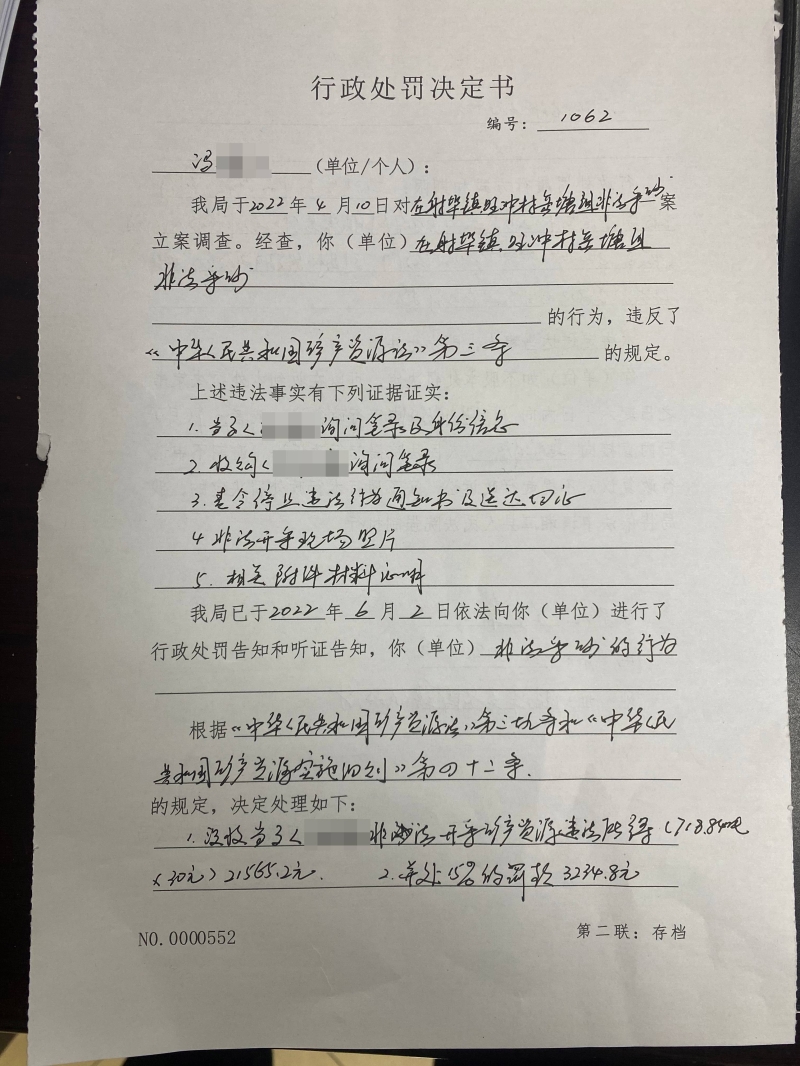 行政处罚决定书
编号：1062
冯 （单位/个人）：
我局于2022年4月10日对在射埠镇旺冲村岳塘组非法采砂案
立案调查。经查，你（单位）在射埠镇旺冲村岳塘组
非法采砂
的行为，违反了
《中华人民共和国矿产资源法》第三条的规定。
上述违法事实有下列证据证实：
1.当事人 询问笔录及身份信息
2.收购人 询问笔录
3.责令停止违法行为通知书及送达回证
4 非法开采现场照片
5.相关附件材料证明
我局已于2022年6月2日依法向你（单位）进行了
行政处罚告知和听证告知，你（单位）非法采砂的行为
根据《中华人民共和国矿产资源法》第三十九条和《中华人民
共和国矿产资源实施细则》第四十二条.
的规定，决定处理如下：
1.没收当事人 非法开采矿产资源违法所得（718.84吨
×30元）21565.2元. 2.并处15%的罚款3234.8元
NO.0000552
第二联：存档